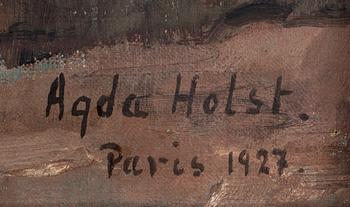 Agda Holst.
Paris 1927.